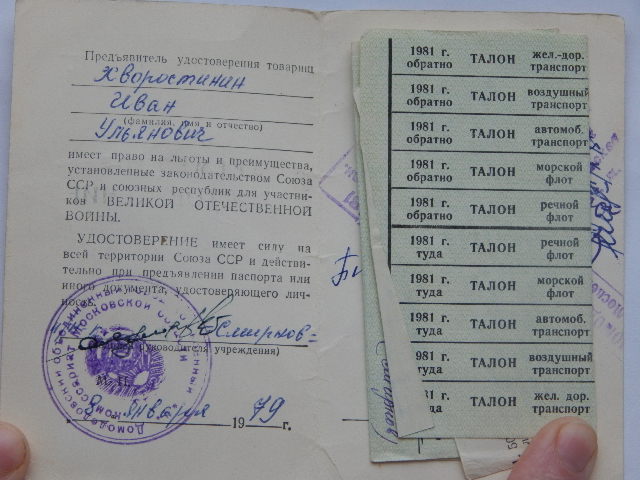 Предъявитель удостоверения товарищ
Хворостинин
Иван
(фамилия, имя и отчество)
Ульянович
имеет право на льготы и преимущества,
установленные законодательством Союза
ССР и союзных республик для участни-
ков ВЕЛИКОЙ ОТЕЧЕСТВЕННОЙ
ВОЙНЫ.
УДОСТОВЕРЕНИЕ имеет силу на
всей территории Союза ССР и действи-
тельно при предъявлении паспорта или
иного документа, удостоверяющего лич-
ность.
Смирнов
руководителя учреждения)
М. П.
8 января 1979 г.
Домодедовский объединенный
Московской
1981 г. обратно ТАЛОН жел.-дор. транспорт
1981 г. обратно ТАЛОН воздушный транспорт
1981 г. обратно ТАЛОН автомоб. транспорт
1981 г. обратно ТАЛОН морской флот
1981 г. обратно ТАЛОН речной флот
1981 г. туда ТАЛОН речной флот
1981 г. туда ТАЛОН морской флот
1981 г. туда ТАЛОН автомоб. транспорт
1981 г. туда ТАЛОН воздушный транспорт
1981 г. туда ТАЛОН жел. дор. транспорт